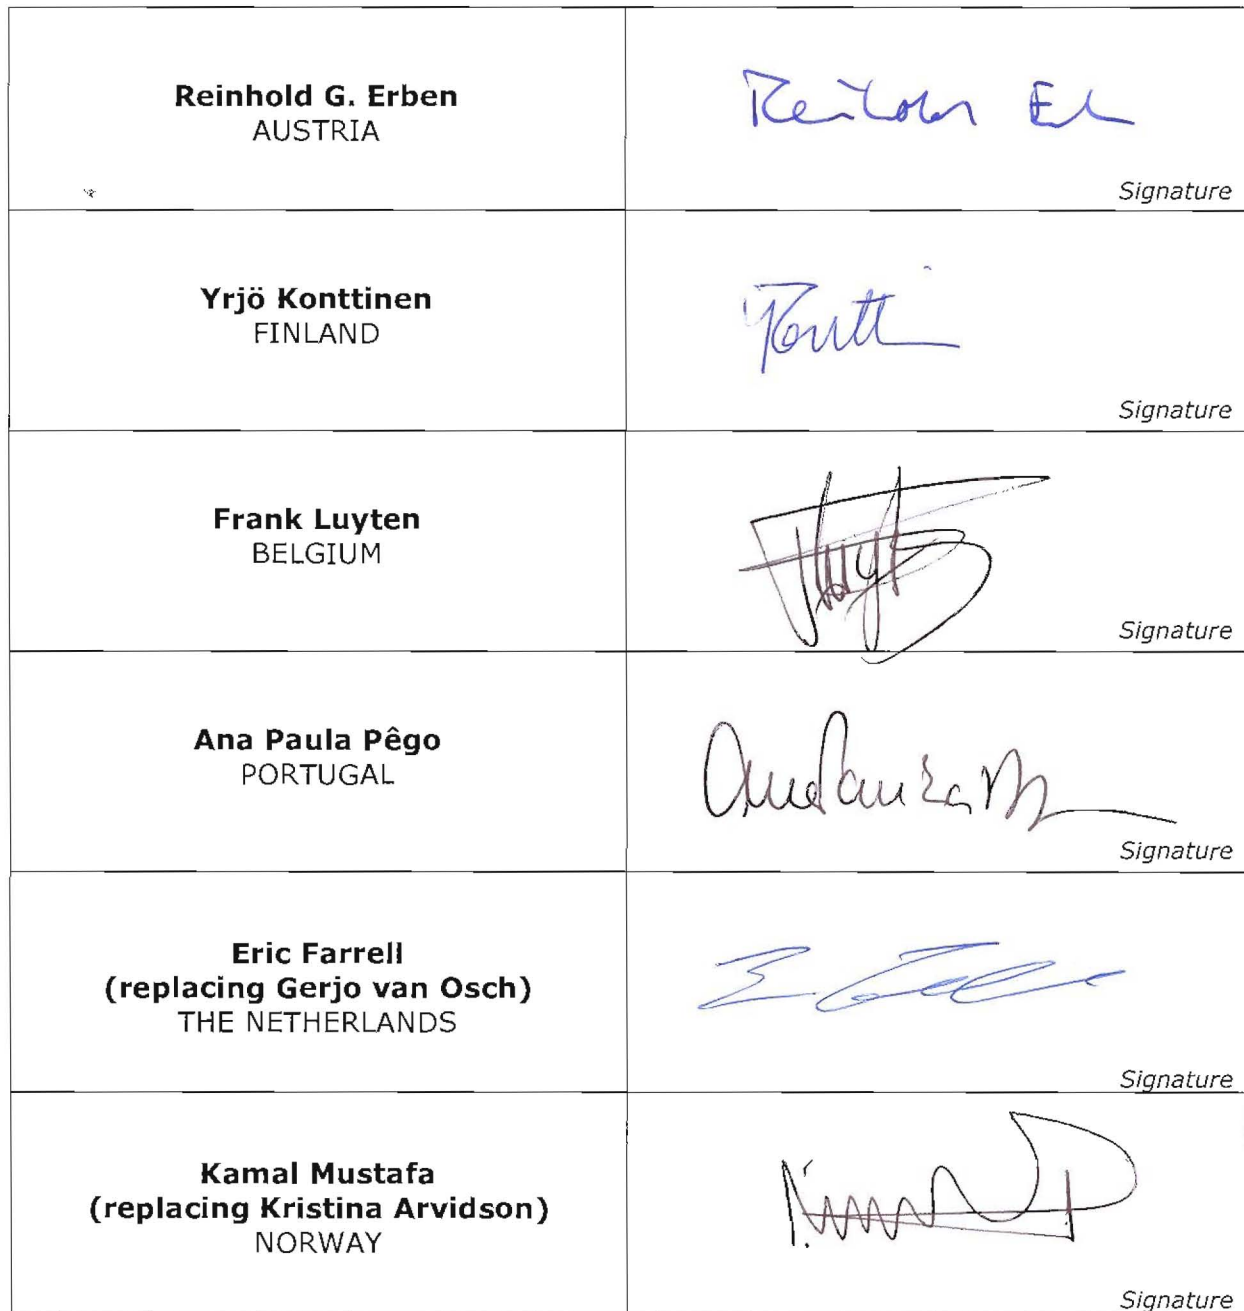 Reinhold G. Erben
AUSTRIA
Reinhold Er
Signature
Yrjö Konttinen
FINLAND
Signature
Frank Luyten
BELGIUM
Signature
Ana Paula Pêgo
PORTUGAL
Signature
Eric Farrell
(replacing Gerjo van Osch)
THE NETHERLANDS
Signature
Kamal Mustafa
(replacing Kristina Arvidson)
NORWAY
Signature